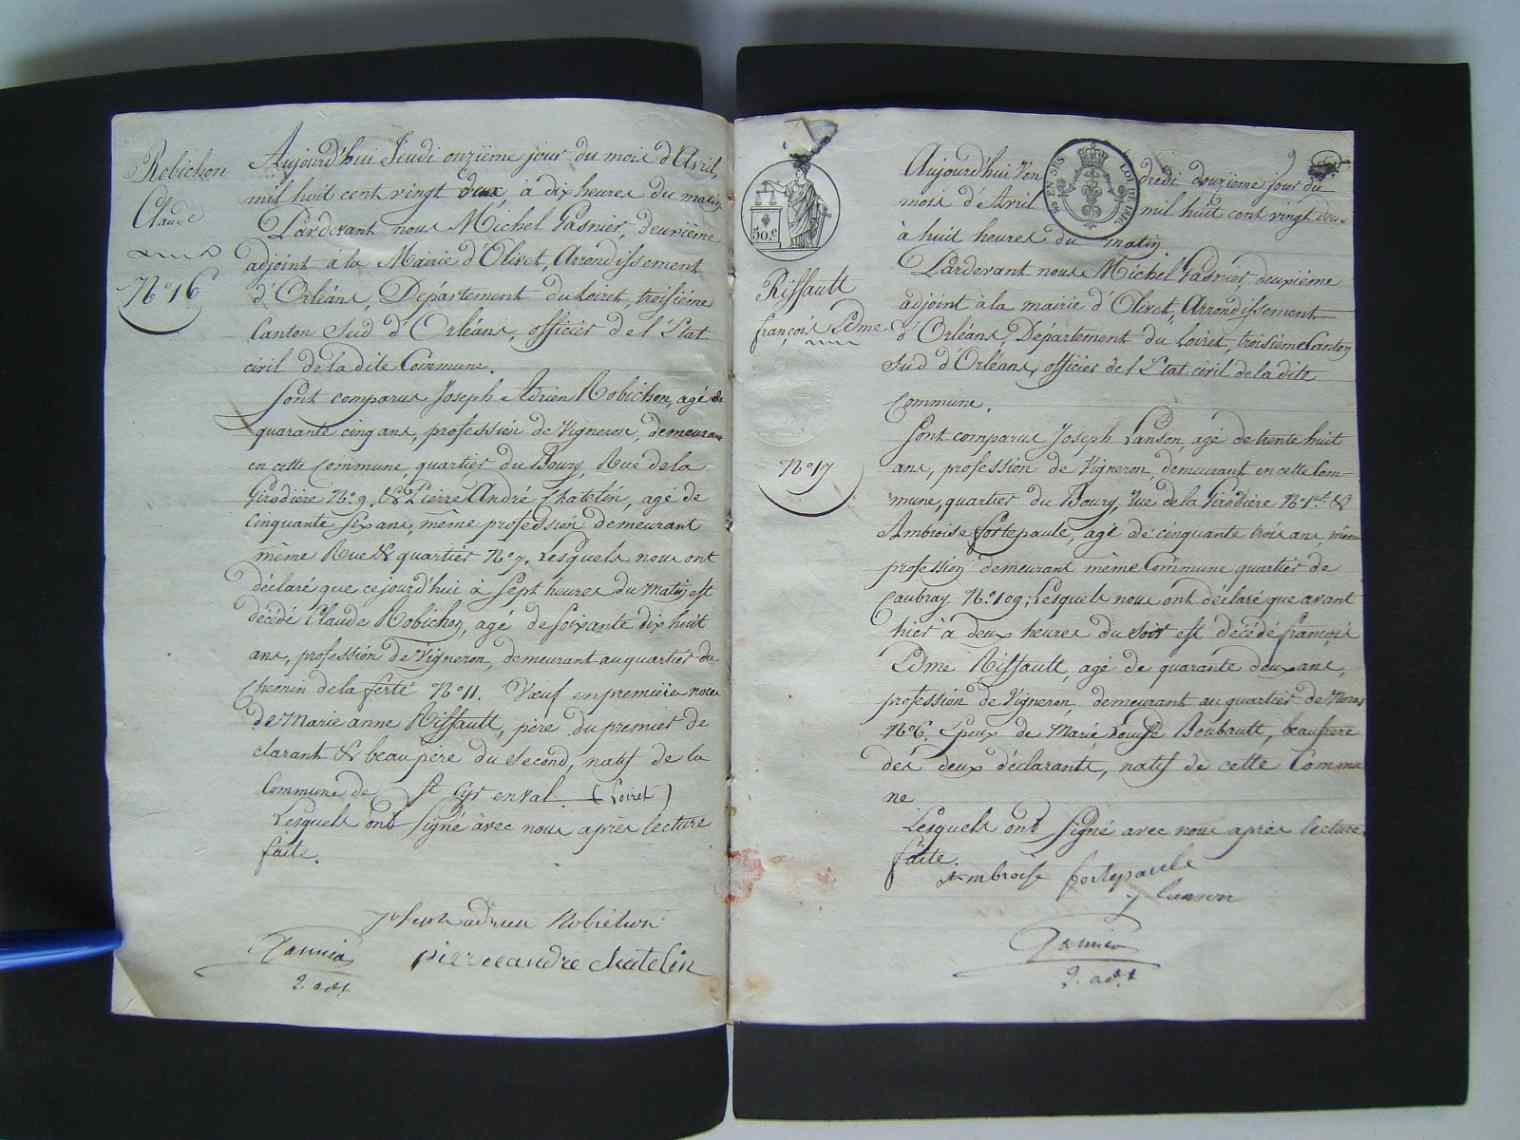 Robichon
Claude
N.° 16
Aujourd'hui Jeudi onzième jour du mois d'Avril,
mil huit cent vingt deux, à dix heures du matin
Pardevant nous Michel Pasnier, deuxième
adjoint à la Mairie d'Olivet, Arrondissement
d'Orléans, Département du Loiret, troisième
Canton Sud d'Orléans, officier de l'Etat
civil de la dite Commune.
Sont comparus Joseph Adrien Robichon, agé de
quarante cinq ans, profession de Vigneron, demeurant
en cette Commune quartier du Bourg, Rue de la
Girodière N.° 9. & Pierre André Chatelin, agé de
cinquante six ans, même profession demeurant
même Rue & quartier N.° 7. Lesquels nous ont
déclaré que cejourd'hui à Sept heures du matin est
décédé Claude Robichon, agé de soixante dix huit
ans, profession de Vigneron, demeurant au quartier du
Chemin de la ferté N.° 11. Vœuf en première noce
de Marie anne Riffault, père du premier dé
clarant & beau père du second, natif de la
Commune de St Cyr en val (Loiret)
Lesquels ont signé avec nous après lecture
faite.
joseph adrien Robichon
Pasnier
pierre andre chatelin
2.e adj.t
50.c
LOI DE 1816
Riffault
françois Edme
N.° 17
Aujourd'hui Ven dredi douzième jour du
mois d'Avril mil huit cent vingt deux
à huit heures du matin
Pardevant nous Michel Pasnier, deuxième
adjoint à la mairie d'Olivet, Arrondissement
d'Orléans, Département du Loiret, troisième Canton
Sud d'Orléans, officier de l'Etat civil de la dite
Commune.
Sont comparus Joseph Lanson, agé de trente huit
ans, profession de Vigneron, demeurant en cette Com-
mune, quartier du Bourg, rue de la Girodière N.° 1.er &
Ambroise fortepaule, agé de cinquante trois ans, même
profession demeurant même Commune quartier de
Caubray N.° 109; Lesquels nous ont déclaré que avant
hier à deux heures du soir est décédé françois
Edme Riffault, agé de quarante deux ans,
profession de Vigneron, demeurant au quartier de
N.° 6. Epoux de Marie Louise Boubault, beaufrere
des deux déclarants, natif de cette Commu
ne
Lesquels ont signé avec nous après lecture
faite.
Ambroise fortepaule
j lanson
Pasnier
2.e adj.t